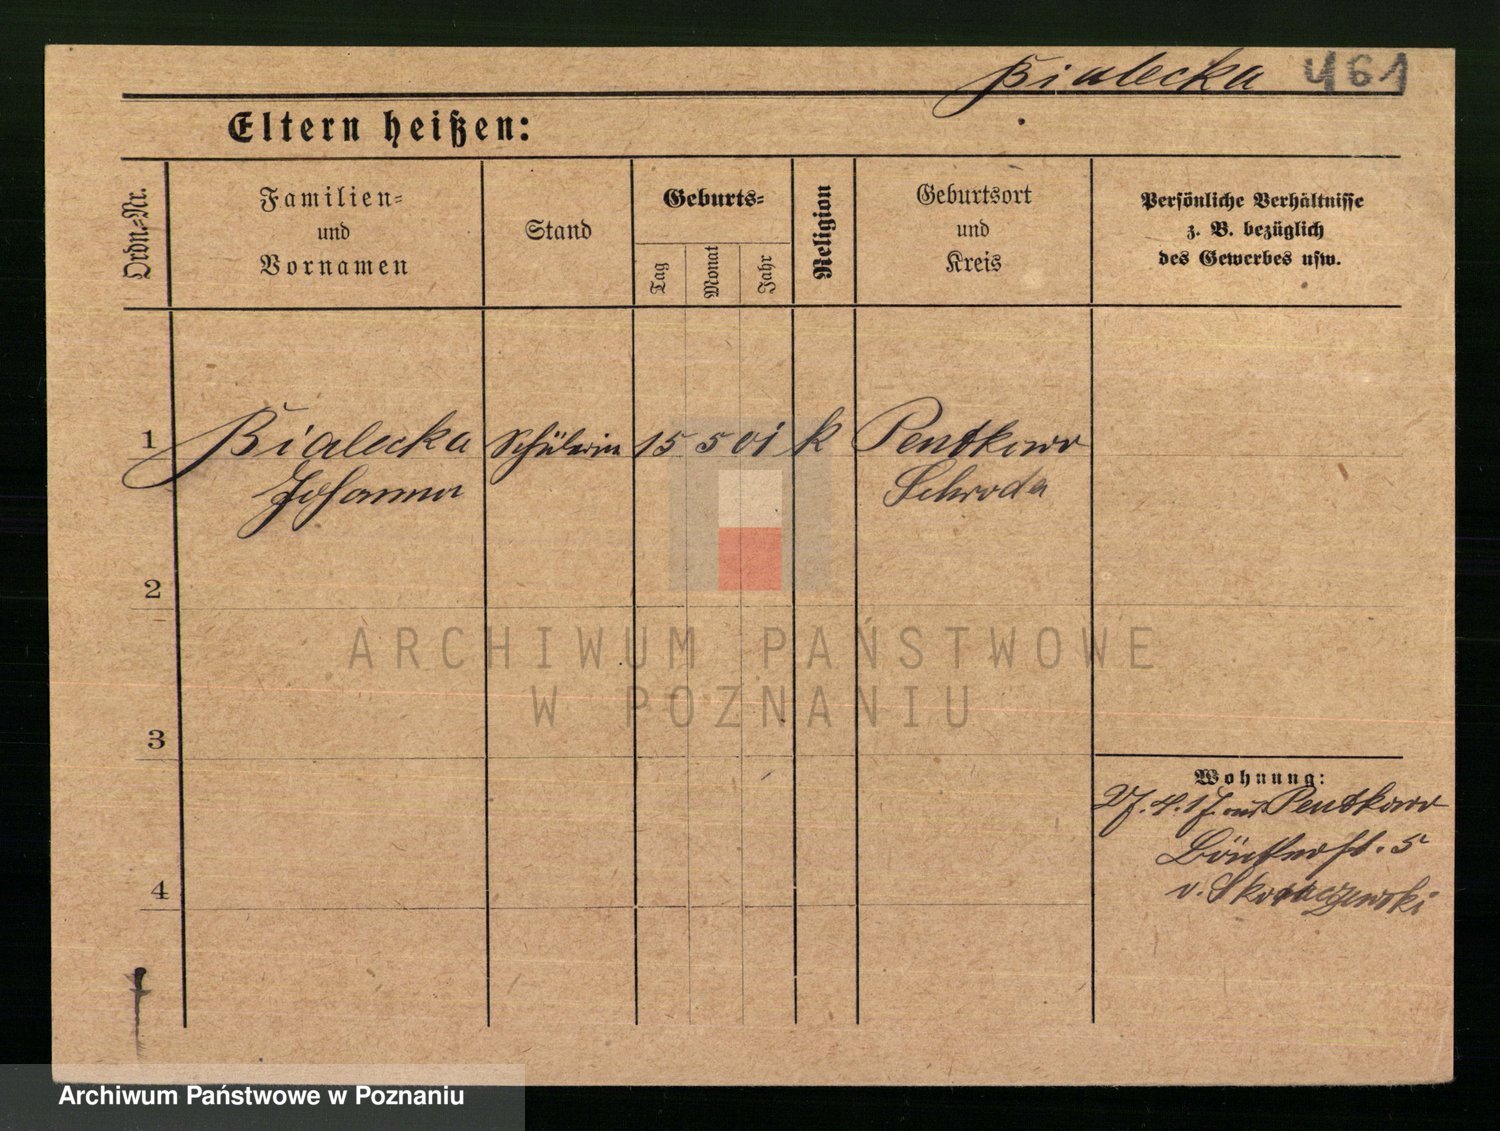 Bialecka 461
Eltern heißen:
Ordn.-Nr.
Familien-
und
Vornamen
Stand
Geburts-
Tag
Monat
Jahr
Religion
Geburtsort
und
Kreis
Persönliche Verhältnisse
z. B. bezüglich
des Gewerbes usw.
1 Bialecka Schülerin 15 5 01 k Pentkowo
Johanna Schroda
2
ARCHIWUM PAŃSTWOWE
W POZNANIU
3
Wohnung:
27. 4. 17. aus Pentkowo
5
v.
4
Archiwum Państwowe w Poznaniu